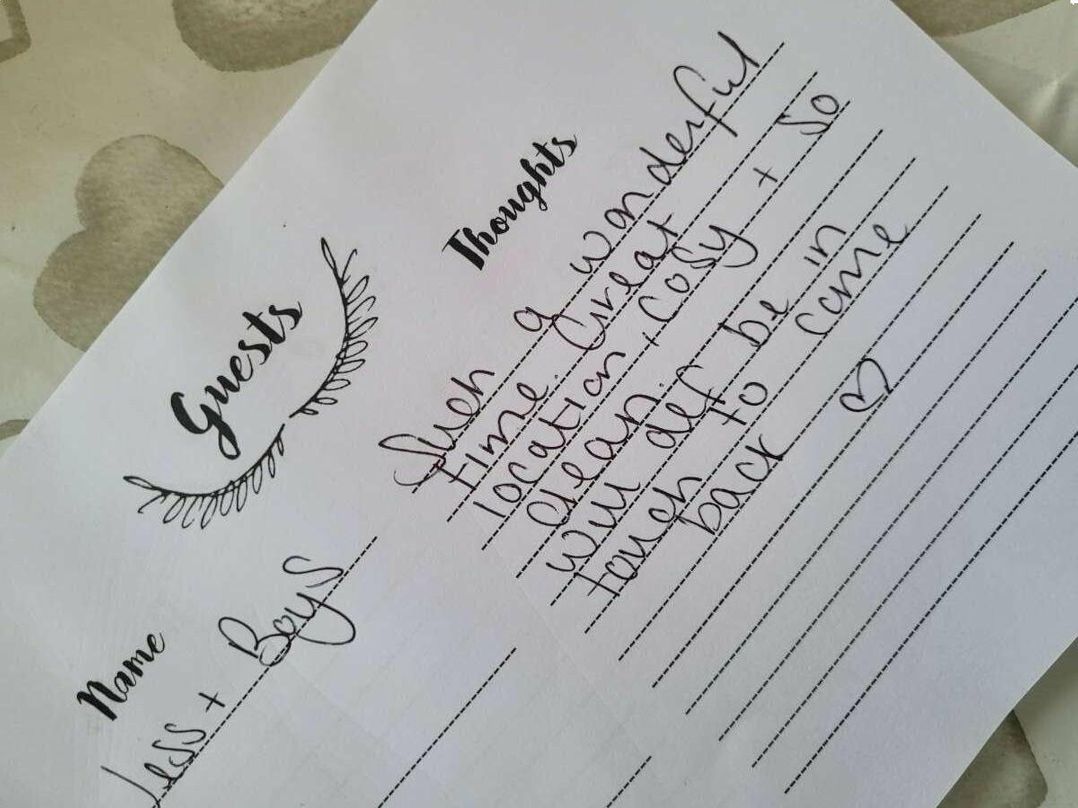 Guests
Name
Jess + Boys
Thoughts
Such a wonderful
time. Great
location, cosy + so
clean.
will def be in
touch to come
back ♡